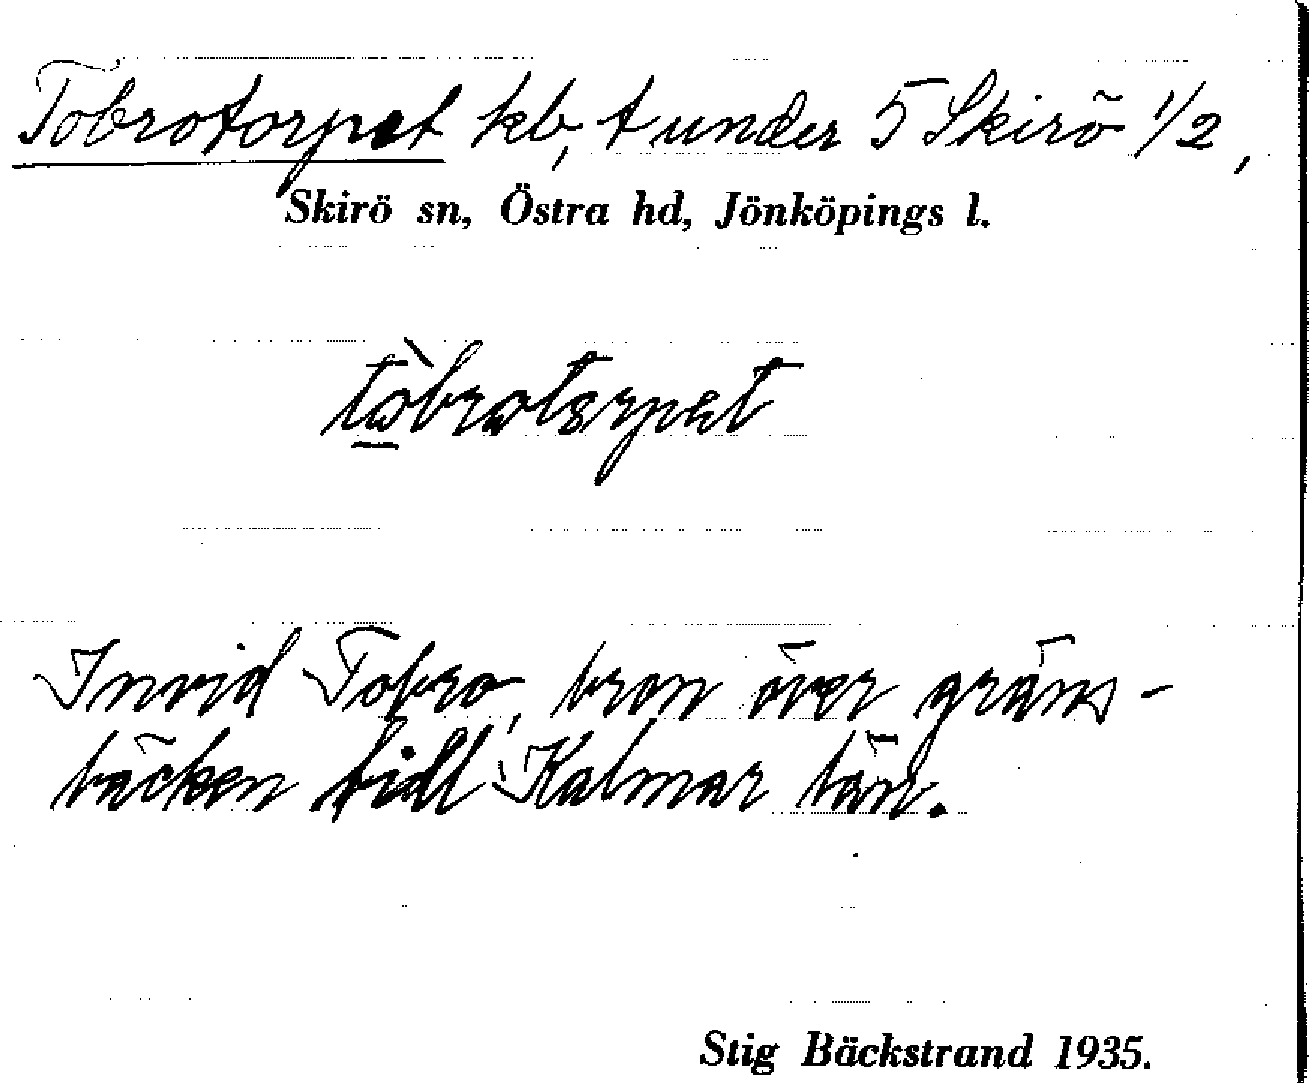 Tobrotorpet kb, t under 5 Skirö 1/2,
Skirö sn, Östra hd, Jönköpings l.
tòbrotorpet
Invid Tobro, bron över gräns-
bäcken till Kalmar län.
Stig Bäckstrand 1935.